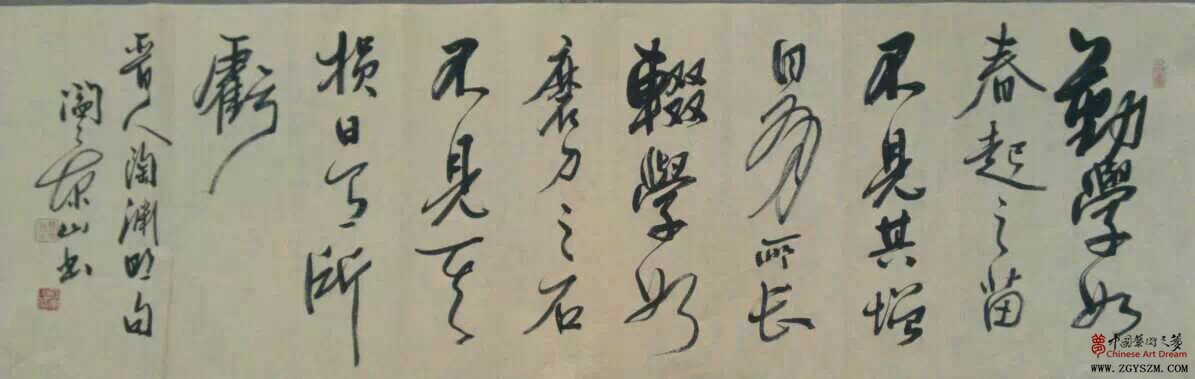 勤學如
春起之苗
不見其增
日有所長
輟學如
磨刀之石
不見其
損日有所
虧
晋人陶渊明句
山书
中國藝術之夢
Chinese Art Dream
WWW.ZGYSZM.COM